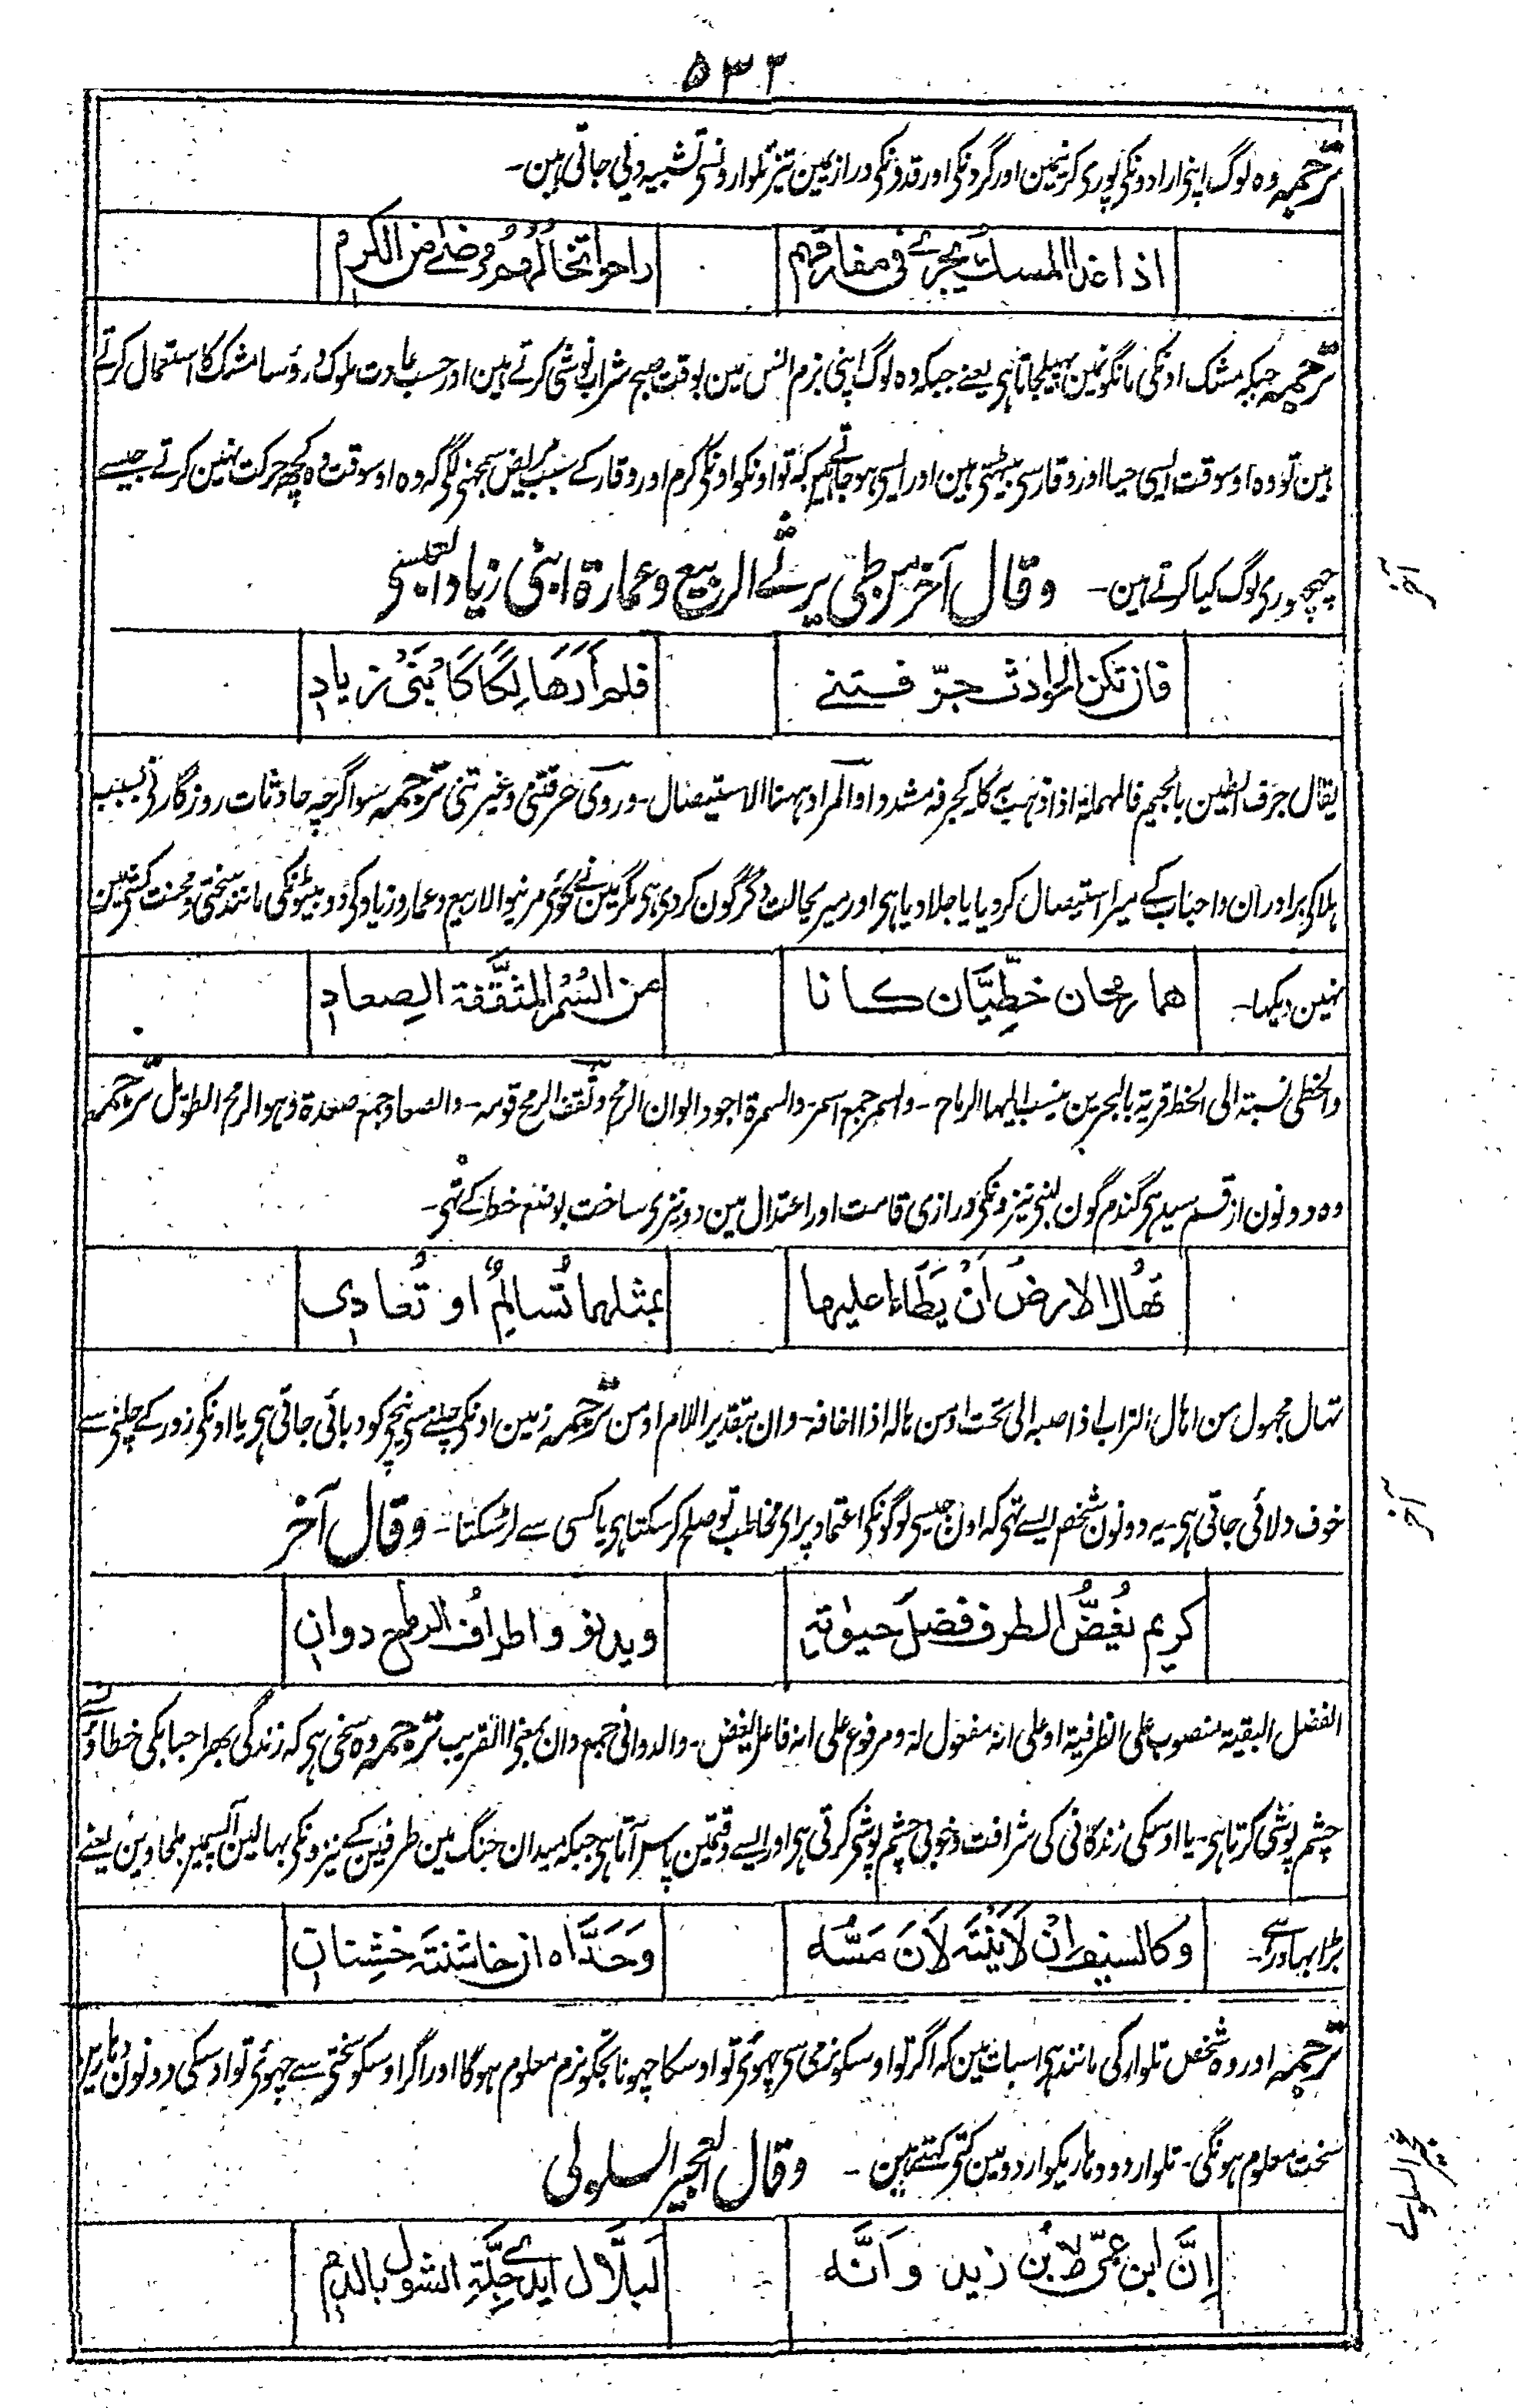 ۵۳۲
ترجمہ وہ لوگ اپنی ارادونکی پوری کرنیمین اور گردنکی اور قدونکی درازیمین تیز تلوارونسی تشبیہ دلی جاتی ہین۔
اذا غدا المسك يجرى فى مفارقهم راحوا تخالهم مرضى من الكرم
ترجمہ جبکہ مشک اونکی مانگونمین پہیلجاتا ہی یعنے جبکہ وہ لوگ اپنی بزم انس مین بوقت صبح شراب نوشی کرتے ہین اور حسب عادت ملوک و رؤسا مشک کا استعمال کرتے
ہین تو وہ اوسوقت ایسی حیا اور وقار سی بیٹھتی ہین اور ایسی ہو جاتے ہین کہ تو اونکو اونکی کرم اور وقار کے سبب مریض سمجہنی لگے کہ وہ اوسوقت وہ کچھ حرکت نہین کرتے جیسے
چہچہوری لوگ کیا کرتے ہین۔ وقال آخر من طی یرثے الربیع وعمارة ابنی زیاد العبسی
آخر
فان تكن الحوادث جرّفتنے فلم أرَ هَالِكًا كَابْنَىْ زياد
یقال جرف الطین بالجیم فالمہملة اذا ذہب بہ کلہ کجرفہ مشددا والمراد ہہنا الاستیصال۔ وروی حرقتنی وغیرتنی ترجمہ سو اگرچہ حادثات روزگار نی بسبب
ہلاکی برادران و احباب کے میرا استیصال کر دیا یا جلا دیا ہی اور میری حالت دگرگون کر دی ہی مگر مین نے کوئی مرنیوالا ربیع و عمارہ زیاد کی دو بیٹونکی مانند سختی و محنت کشی مین
نہین دیکہا۔ هما رمحان خطِّيَّان كانا من السُّمر المثقَّفة الصعاد
والخطی نسبتہ الی الخط قریۃ بالبحرین ینسب الیہا الرماح۔ والسمر جمع اسمر۔ والسمرة اجود الوان الرمح وثقف الرمح قومہ۔ والصعاد جمع صعدة وہو الرمح الطویل ترجمہ
وہ دونون از قسم سیدہی گندم گون لنبی نیزونکی درازی قامت اور اعتدال مین دو نیزی ساخت بوضع خط کے تہی۔
تهال الارض ان يطاٰ عليها بمثلهما تسالم او تعادى
تہال مجہول من اہال التراب اذا صبہ الی تحت او من ہالہ اذا اخافہ۔ وان بتقدیر اللام او من ترجمہ زمین اونکی چلنے سی نیچی کو دبائی جاتی ہی یا اونکی زور کے چلنی سے
خوف دلائی جاتی ہی۔ یہ دونون شخص ایسے تہی کہ اون جیسی لوگونکی اعتماد پر ای مخاطب تو صلح کر سکتا ہی یا کسی سے لڑ سکتا۔ وقال آخر
آخر
كريم يغضّ الطرف فضل حيوٰته ويدنو واطراف الرماح دوان
الفضل البقیۃ منصوب علی الظرفیۃ او علی انہ مفعول لہ ومرفوع علی انہ فاعل یغض۔ والدوانی جمع دان بمعنی القریب ترجمہ وہ سخی ہی کہ زندگی بہر احبابکی خطا
چشم پوشی کرتا ہی۔ یا اوسکی زندگانی کی شرافت و خوبی چشم پوشی کرتی ہی اور ایسے وقتمین پاس آتا ہی جبکہ میدان جنگ مین طرفین کے نیزونکی بہالین آپسمین ملجاوین یعنے
بڑا بہادر ہے۔ وكالسيف ان لاينته لان مسّه وحدّاه ان خاشنته خشنان
ترجمہ اور وہ شخص تلوار کی مانند ہی اسبات مین کہ اگر تو اوسکو نرمی سی چہوئی تو اوسکا چہونا تجکو نرم معلوم ہوگا اور اگر اوسکو سختی سے چہوئی تو اوسکی دونون دہارین
سخت معلوم ہونگی۔ تلوار دو دہاریکو اردو مین کتی کہتے ہین۔ وقال العجير السلولی
عجیر السلولی
إنّ ابن عمّى لابن زيد وانّه لبلّال ايدى جلّة الشول بالدم